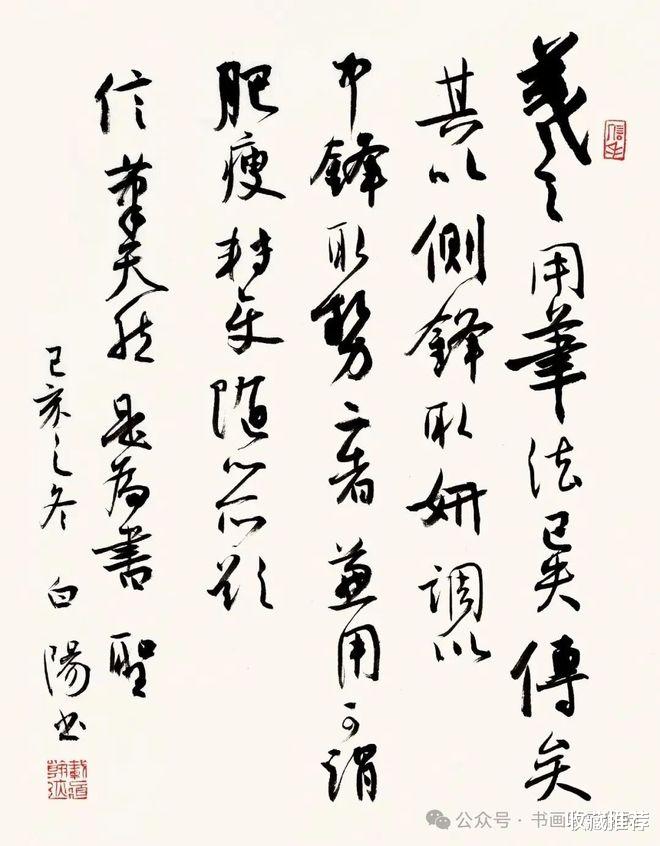 羲之用筆法已失傳矣
其以側鋒取妍調以
中鋒取勢二者兼用可謂
肥瘦轉変隨心所欲
信筆天然是為書聖
己亥之冬 白陽书
公众号·书画收藏推荐
收藏推荐